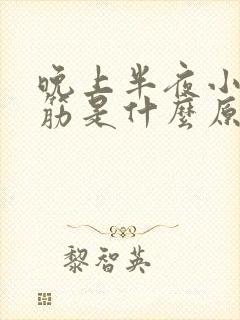 晚上半夜小
筋是什麼原
黎智英